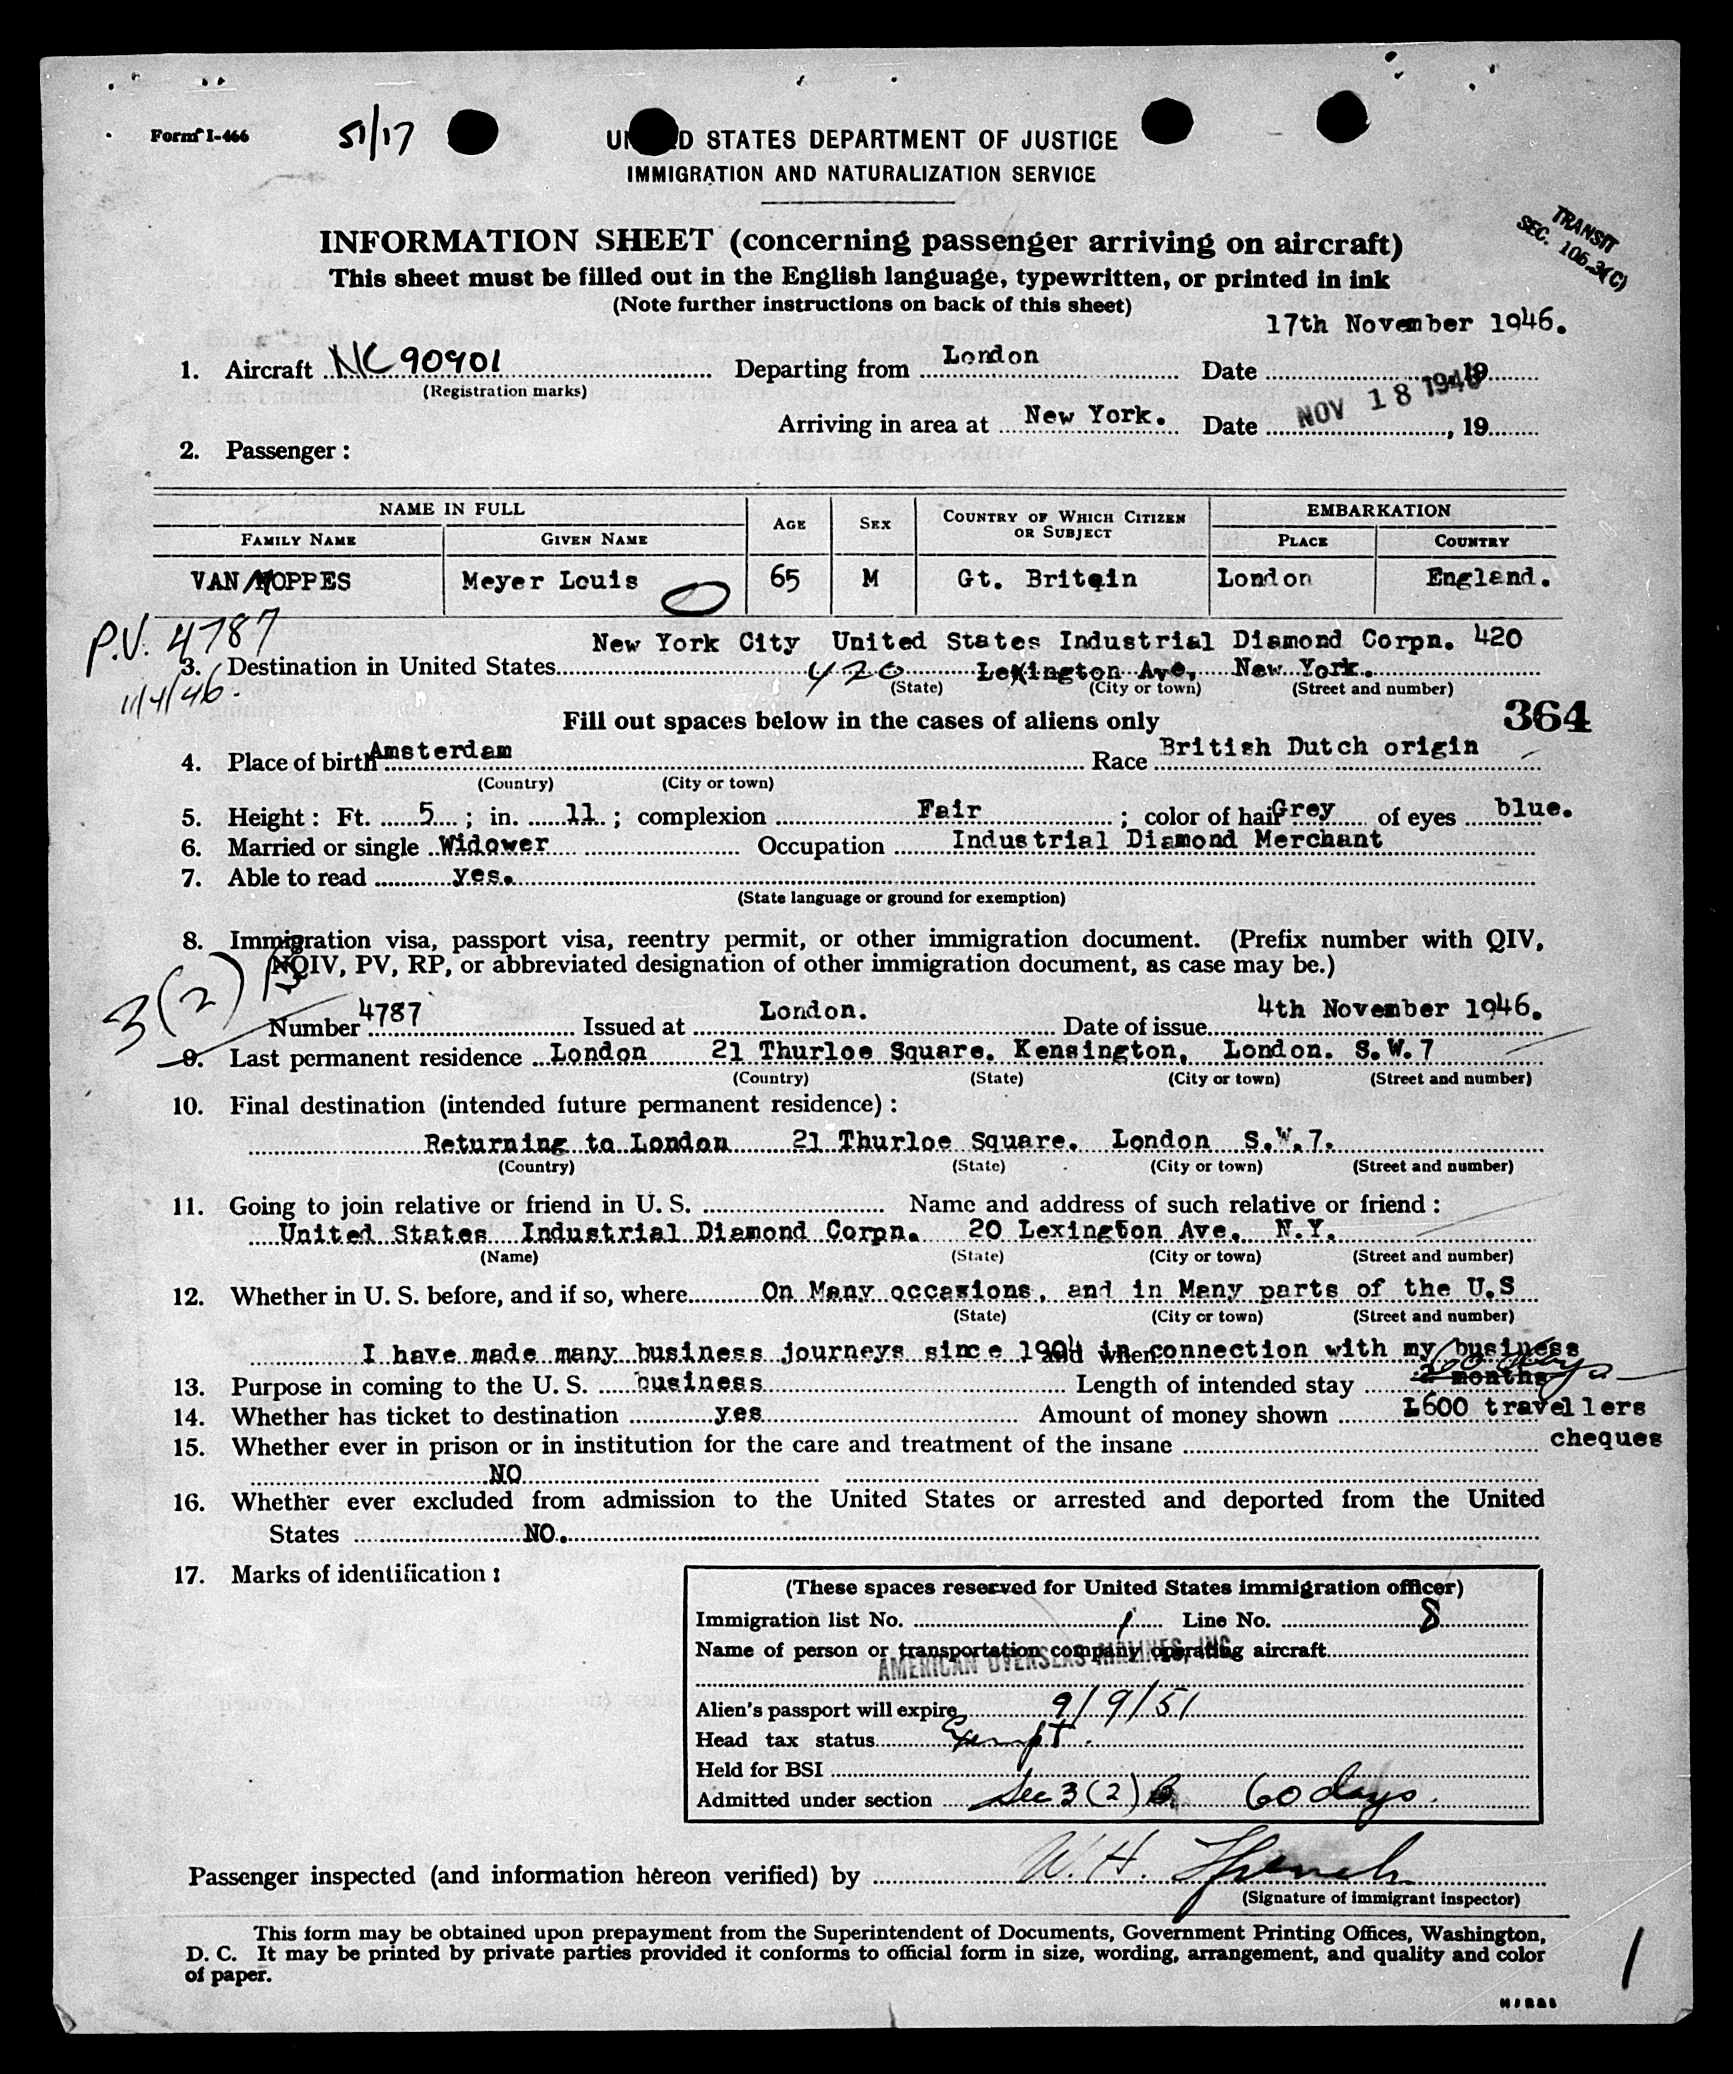 Form I-466
51/17
UNITED STATES DEPARTMENT OF JUSTICE
IMMIGRATION AND NATURALIZATION SERVICE
INFORMATION SHEET (concerning passenger arriving on aircraft)
TRANSIT
SEC. 105.3(C)
This sheet must be filled out in the English language, typewritten, or printed in ink
(Note further instructions on back of this sheet)
17th November 1946.
1. Aircraft NC 90901 Departing from London Date , 19
(Registration marks)
Arriving in area at New York. Date NOV 18 1946, 19
2. Passenger :
NAME IN FULL AGE SEX COUNTRY OF WHICH CITIZEN OR SUBJECT EMBARKATION
FAMILY NAME GIVEN NAME PLACE COUNTRY
VAN MOPPES Meyer Louis 65 M Gt. Britain London England.
P.V. 4787
New York City United States Industrial Diamond Corpn. 420
3. Destination in United States 420 Lexington Ave, New York.
(State) (City or town) (Street and number)
11/4/46.
Fill out spaces below in the cases of aliens only 364
4. Place of birth Amsterdam Race British Dutch origin
(Country) (City or town)
5. Height : Ft. 5 ; in. 11 ; complexion Fair ; color of hair Grey of eyes blue.
6. Married or single Widower Occupation Industrial Diamond Merchant
7. Able to read yes.
(State language or ground for exemption)
8. Immigration visa, passport visa, reentry permit, or other immigration document. (Prefix number with QIV,
NQIV, PV, RP, or abbreviated designation of other immigration document, as case may be.)
3(2)
Number 4787 Issued at London. Date of issue 4th November 1946.
9. Last permanent residence London 21 Thurloe Square. Kensington, London. S.W.7
(Country) (State) (City or town) (Street and number)
10. Final destination (intended future permanent residence) :
Returning to London 21 Thurloe Square. London S.W.7.
(Country) (State) (City or town) (Street and number)
11. Going to join relative or friend in U. S. Name and address of such relative or friend :
United States Industrial Diamond Corpn. 20 Lexington Ave, N.Y.
(Name) (State) (City or town) (Street and number)
12. Whether in U. S. before, and if so, where On Many occasions, and in Many parts of the U.S
(State) (City or town) (Street and number)
I have made many business journeys since 1904 and when in connection with my business
13. Purpose in coming to the U. S. business Length of intended stay 2 months 60 days
14. Whether has ticket to destination yes Amount of money shown £600 travellers
15. Whether ever in prison or in institution for the care and treatment of the insane cheques
NO
16. Whether ever excluded from admission to the United States or arrested and deported from the United
States NO.
17. Marks of identification :
(These spaces reserved for United States immigration officer)
Immigration list No. 1 Line No. 8
Name of person or transportation company operating aircraft
AMERICAN OVERSEAS AIRLINES, INC.
Alien's passport will expire 9/9/51
Head tax status Exempt.
Held for BSI
Admitted under section Sec 3(2) B 60 days.
Passenger inspected (and information hereon verified) by W. H. French
(Signature of immigrant inspector)
This form may be obtained upon prepayment from the Superintendent of Documents, Government Printing Offices, Washington,
D. C. It may be printed by private parties provided it conforms to official form in size, wording, arrangement, and quality and color
of paper.
1